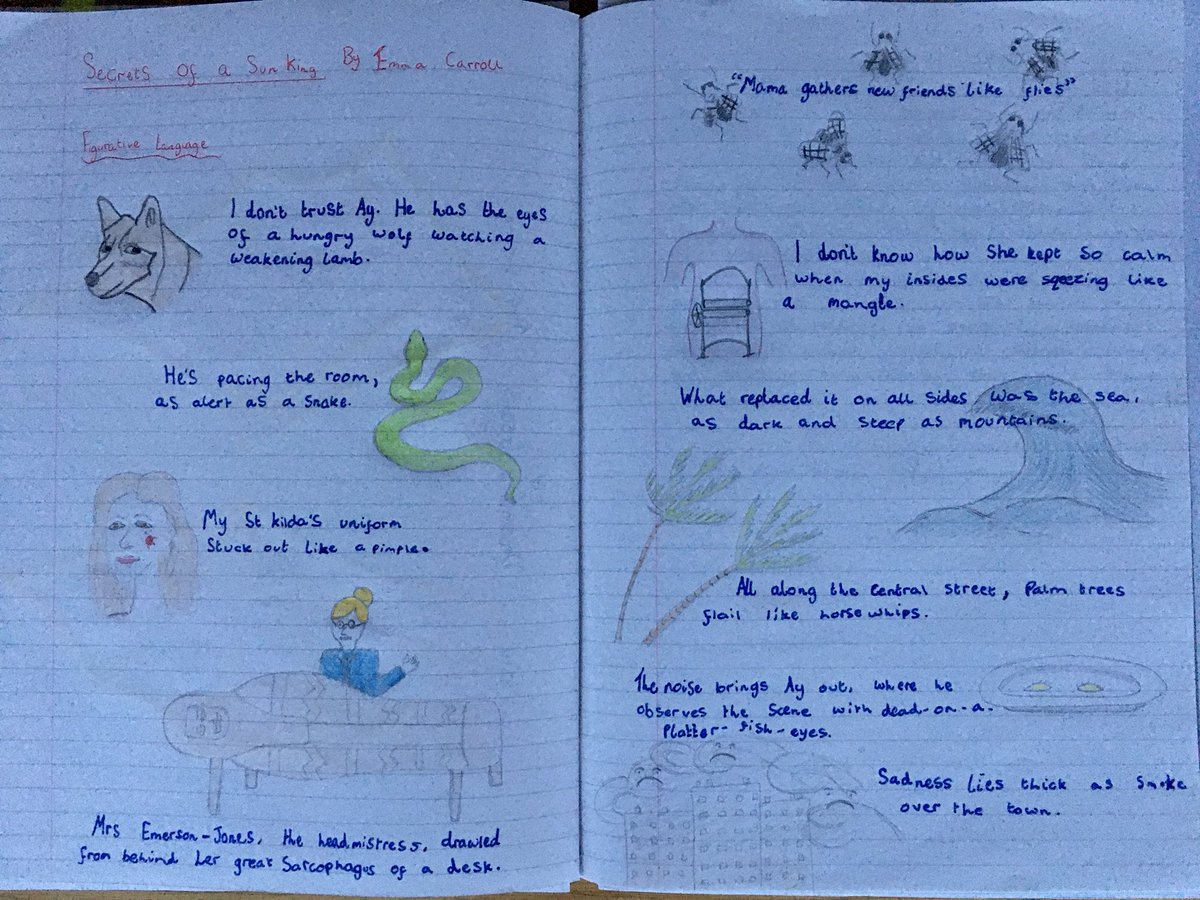 Secrets of a Sun King By Emma Carroll
Figurative Language
I don't trust Ay. He has the eyes
of a hungry wolf watching a
weakening lamb.
He's pacing the room,
as alert as a snake.
My St Kilda's uniform
stuck out like a pimple.
Mrs Emerson-Jones, the headmistress, drawled
from behind her great sarcophagus of a desk.
"Mama gathers new friends like flies"
I don't know how she kept so calm
when my insides were sqeezing like
a mangle.
What replaced it on all sides was the sea,
as dark and steep as mountains.
All along the central street, palm trees
flail like horse whips.
The noise brings Ay out, where he
observes the scene with dead-on-a-
platter-fish-eyes.
Sadness lies thick as smoke
over the town.